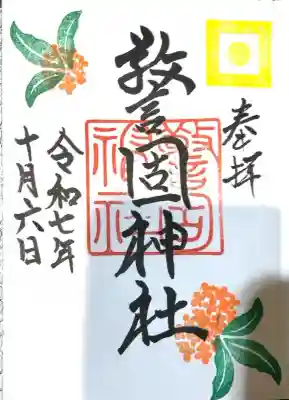 奉拝
警固神社
令和七年
十月六日